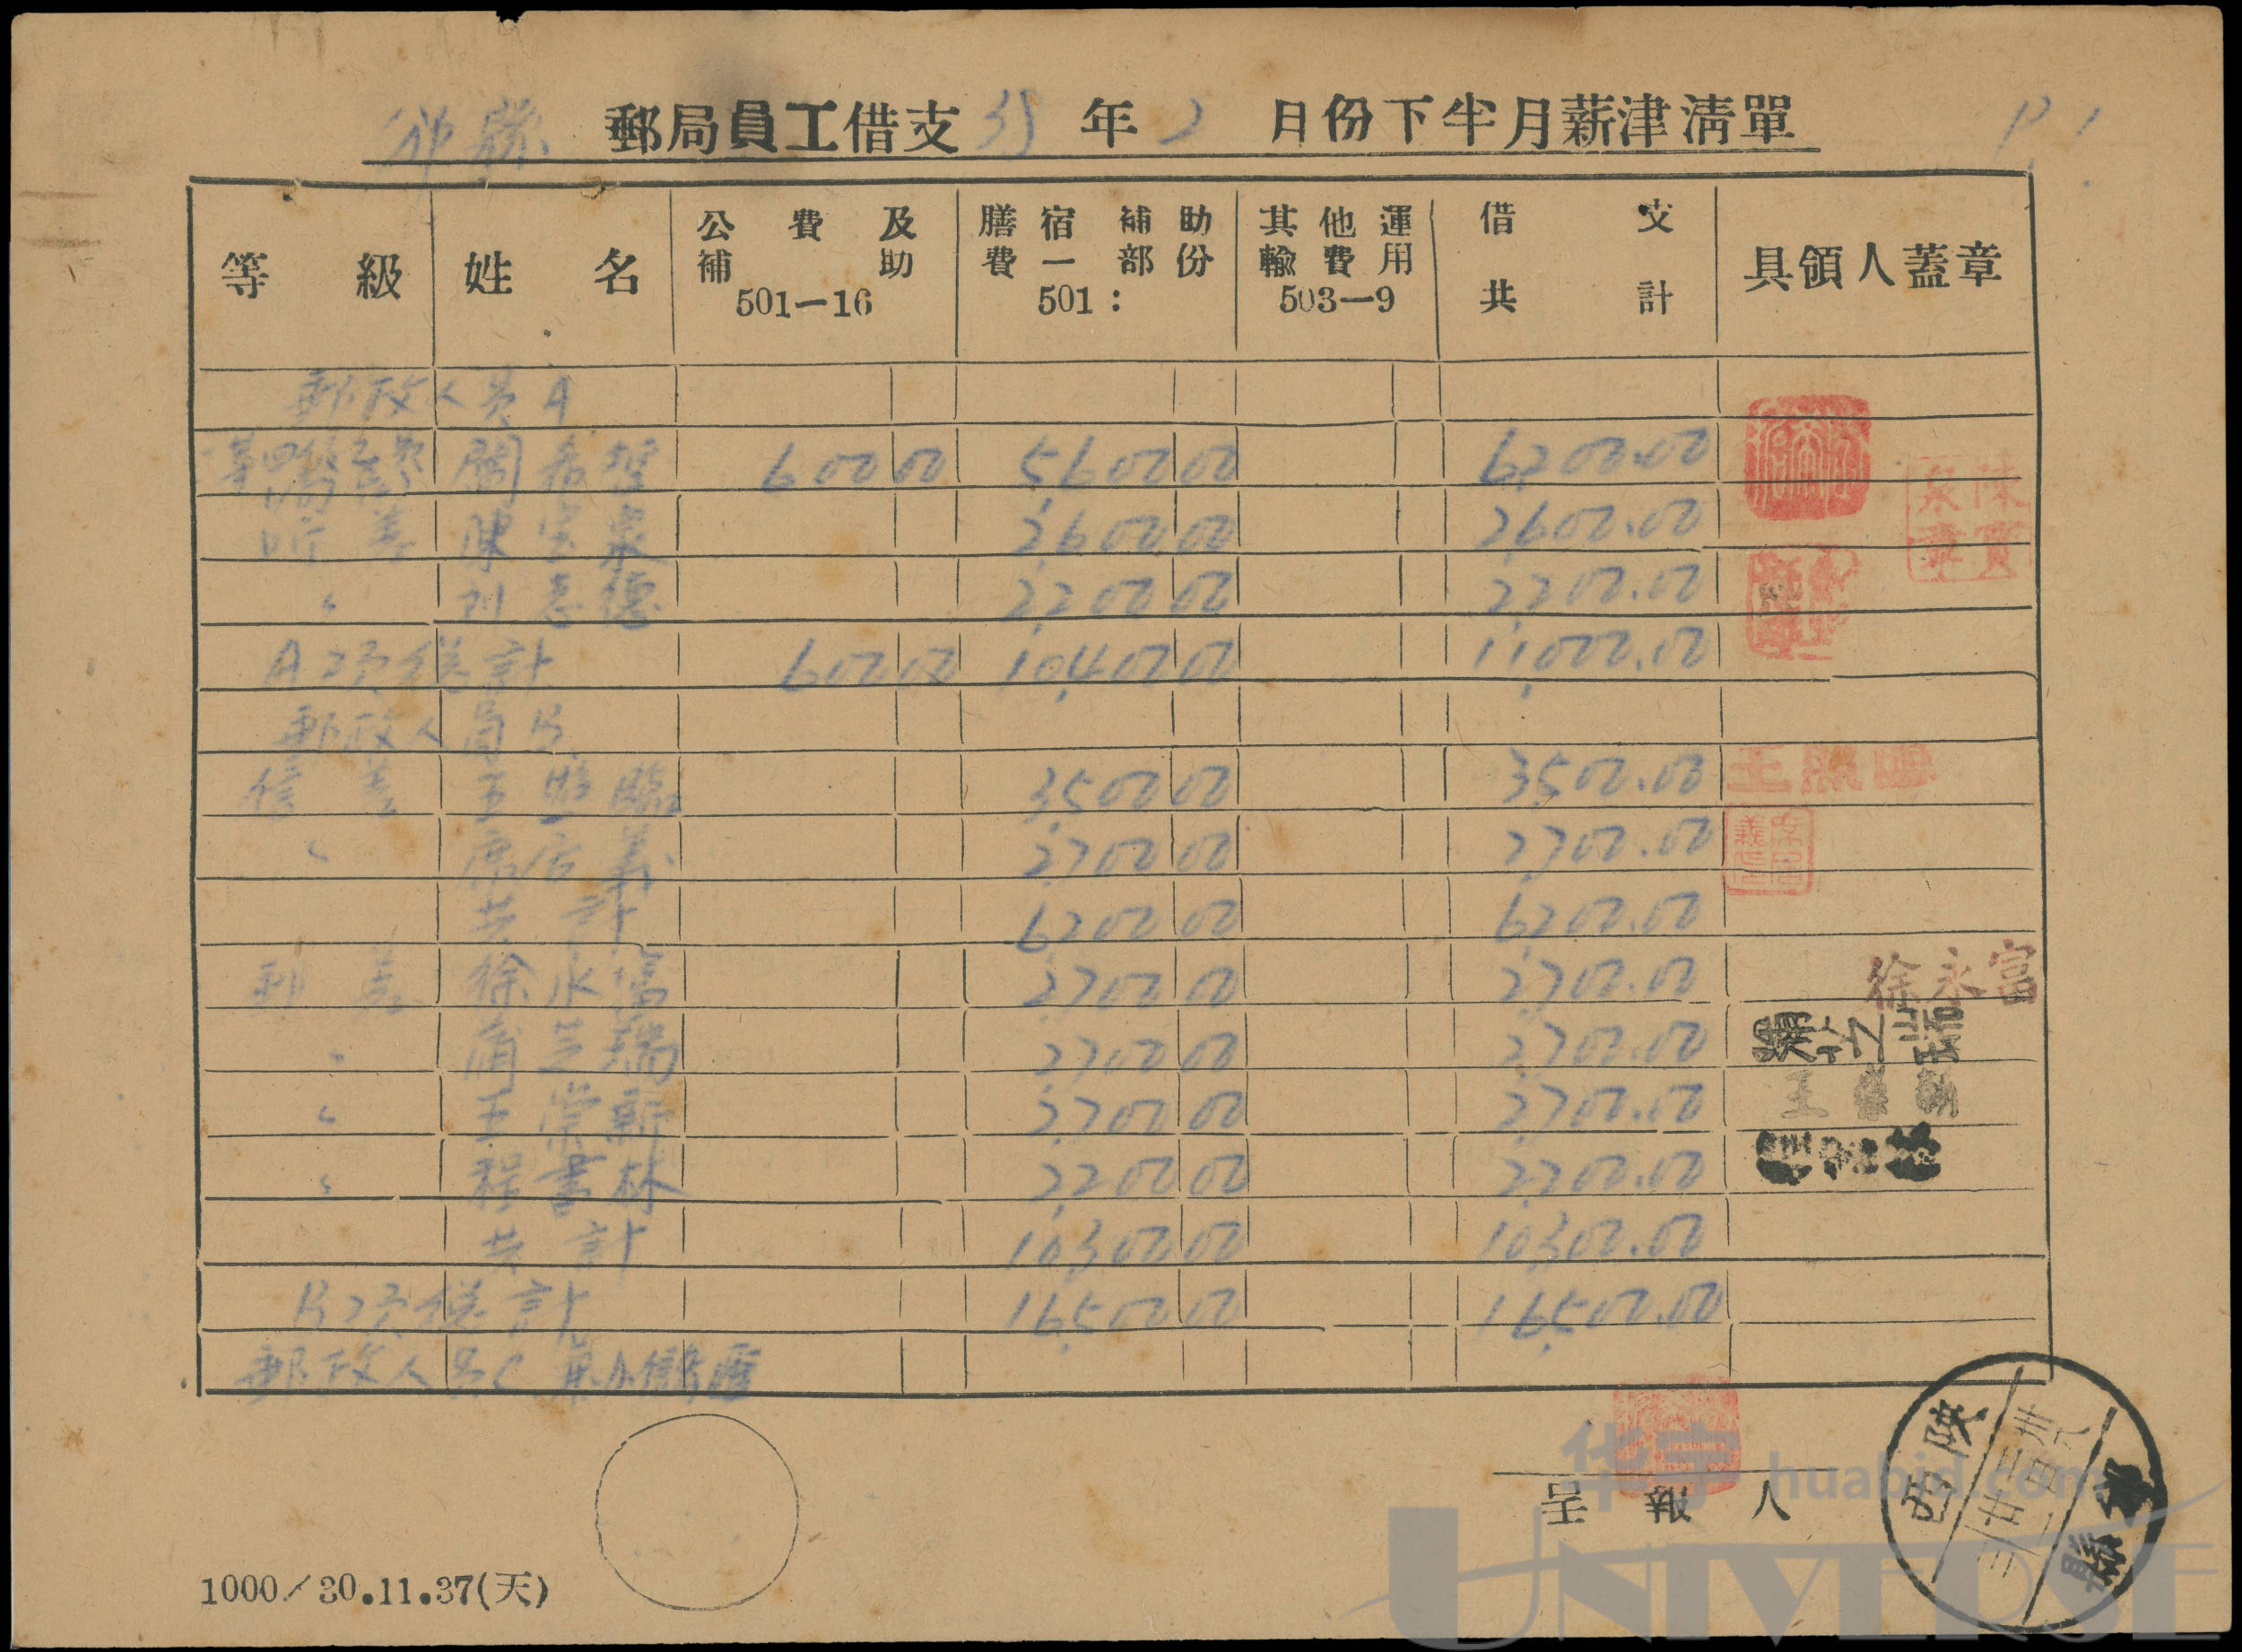 郵局員工借支 38 年 2 月份下半月薪津清單 P. 1
等級 姓名 公費及補助 501—16 膳宿補助費一部份 501: 其他運輸費用 503—9 借支共計 具領人蓋章
郵政人員A
600 00 5,600 00 6,200.00
陳宝泉 2,600 00 2,600.00
〃 刘志德 2,200 00 2,200.00
A項總計 600 00 10,400 00 11,000.00
郵政人員B
信差 王照臨 3,500 00 3,500.00
〃 席居義 2,700 00 2,700.00
共計 6,200 00 6,200.00
郵差 徐永富 2,700 00 2,700.00
〃 芝瑞 2,700 00 2,700.00
〃 王崇新 2,700 00 2,700.00
〃 程書林 2,200 00 2,200.00
共計 10,300 00 10,300.00
B項總計 16,500 00 16,500.00
郵政人員C
陳寶泉章
王照臨
席居義印
徐永富
呈報人
陝西
縣
1000/30.11.37(天)
华宇 huabid.com
UNIVERSE